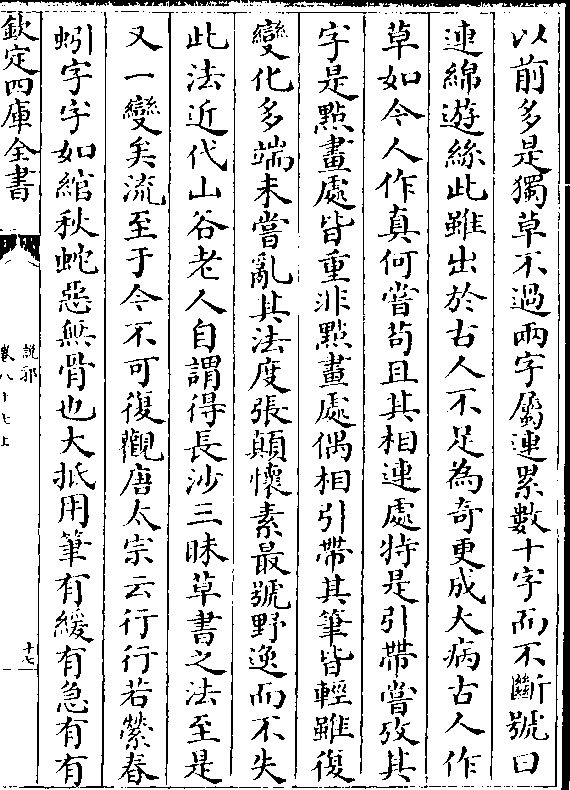 以前多是獨草不過兩字屬連累數十字而不斷號曰
連綿遊絲此雖出於古人不足為奇更成大病古人作
草如今人作真何嘗茍且其相連處特是引帶嘗攷其
字是點畫處皆重非點畫處偶相引帶其筆皆輕雖復
變化多端未嘗亂其法度張顛懷素最號野逸而不失
此法近代山谷老人自謂得長沙三昧草書之法至是
又一變矣流至于今不可復觀唐太宗云行行若縈春
蚓字字如綰秋蛇惡無骨也大抵用筆有緩有急有有
欽定四庫全書
說郛
卷八十七上
十七